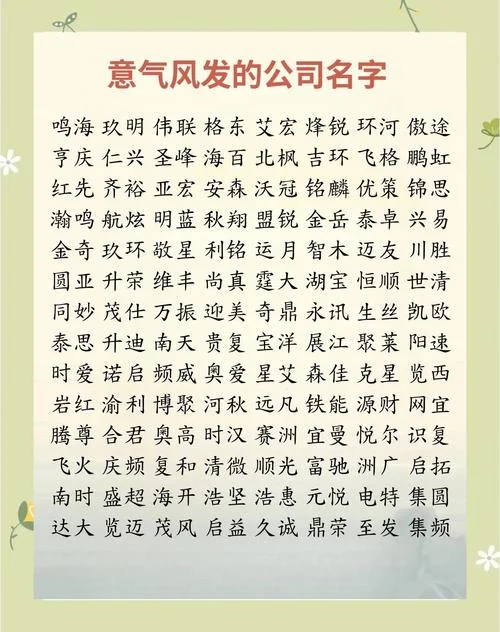 意气风发的公司名字
鸣海 玖明 伟联 格东 艾宏 烽锐 环河 傲途
亨庆 仁兴 圣峰 海百 北枫 吉环 飞格 鹏虹
红先 齐裕 亚宏 安森 沃冠 铭麟 优策 锦思
瀚鸣 航炫 明蓝 秋翔 盟锐 金岳 泰卓 兴易
金奇 玖环 敬星 利铭 运月 智木 迈友 川胜
圆亚 升荣 维丰 尚真 霆大 湖宝 恒顺 世清
同妙 茂仕 万振 迎美 奇鼎 永讯 生丝 凯欧
泰思 升迪 南天 贵复 宝洋 展江 聚莱 阳速
时爱 诺启 频威 奥爱 星艾 森佳 克星 览西
岩红 渝利 博聚 河秋 远凡 铁能 源财 网宜
腾尊 合君 奥高 时汉 赛洲 宜曼 悦尔 识复
飞火 庆频 复和 清微 顺光 富驰 洲广 启拓
南时 盛超 海开 浩坚 浩惠 元悦 电特 集圆
达大 览迈 茂风 启益 久诚 鼎荣 至发 集频